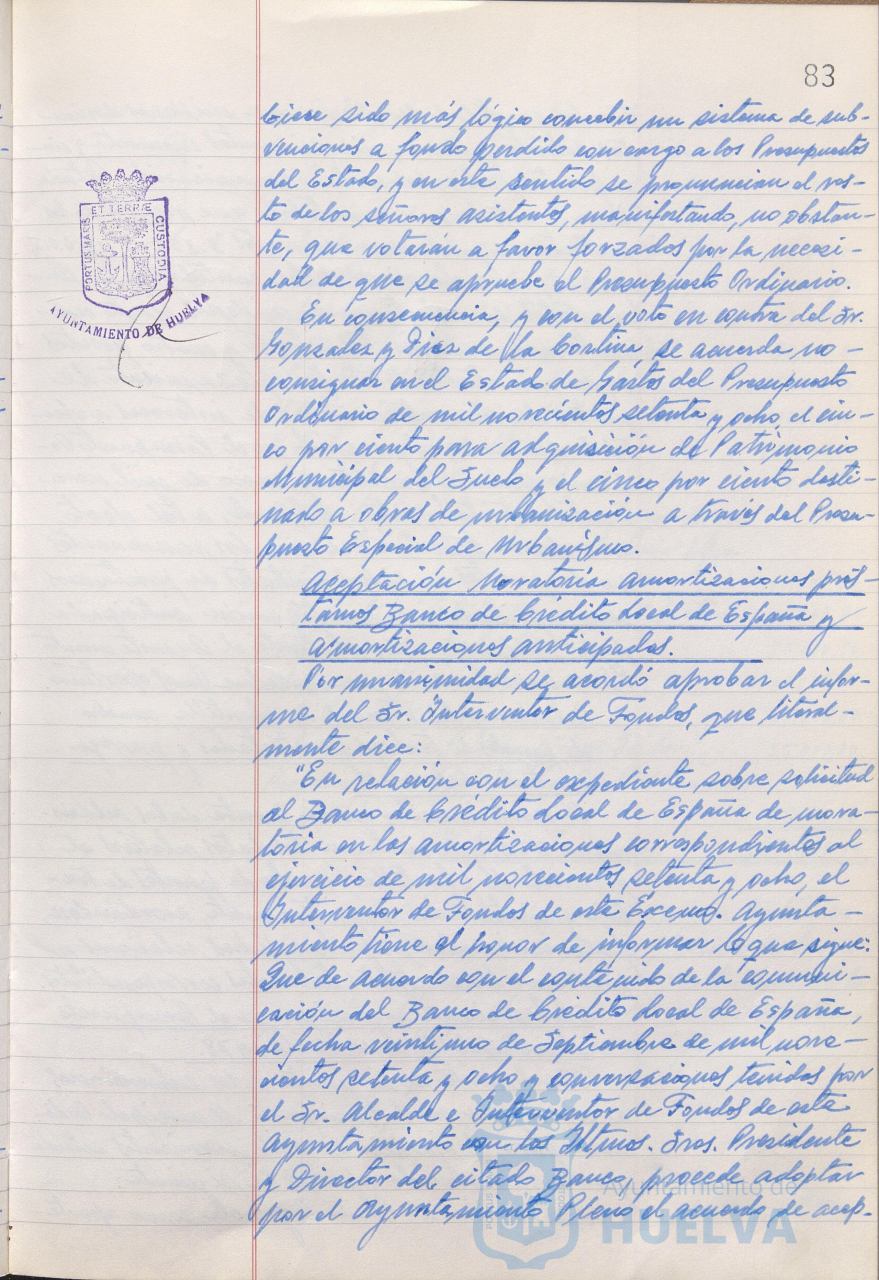 83
biese sido más lógico concebir un sistema de sub-
venciones a fondo perdido con cargo a los Presupuestos
del Estado, y en este sentido se pronuncian el res-
to de los señores asistentes, manifestando, no obstan-
te, que votarán a favor forzados por la necesi-
dad de que se apruebe el Presupuesto Ordinario.
En consecuencia, y con el voto en contra del Sr.
González y Diez de la Cortina, se acuerda no -
consignar en el Estado de Gastos del Presupuesto
Ordinario de mil novecientos setenta y ocho, el cin-
co por ciento para adquisición de Patrimonio
Municipal del Suelo y el cinco por ciento desti-
nado a obras de urbanización a través del Presu-
puesto Especial de Urbanismo.
Aceptación Moratoria amortizaciones prés-
tamos Banco de Crédito Local de España y
amortizaciones anticipadas.
Por unanimidad se acordó aprobar el infor-
me del Sr. Interventor de Fondos, que literal-
mente dice:
"En relación con el expediente sobre solicitud
al Banco de Crédito Local de España de mora-
toria en las amortizaciones correspondientes al
ejercicio de mil novecientos setenta y ocho, el
Interventor de Fondos de este Excmo. Ayunta-
miento tiene el honor de informar lo que sigue:
Que de acuerdo con el contenido de la comuni-
cación del Banco de Crédito Local de España,
de fecha veintiuno de Septiembre de mil nove-
cientos setenta y ocho y conversaciones tenidas por
el Sr. Alcalde e Interventor de Fondos de este
Ayuntamiento con los Iltmos. Sres. Presidente
y Director del citado Banco, procede adoptar
por el Ayuntamiento Pleno el acuerdo de acep-
PORTUS MARIS ET TERRÆ CUSTODIA
AYUNTAMIENTO DE HUELVA
Ayuntamiento de
HUELVA